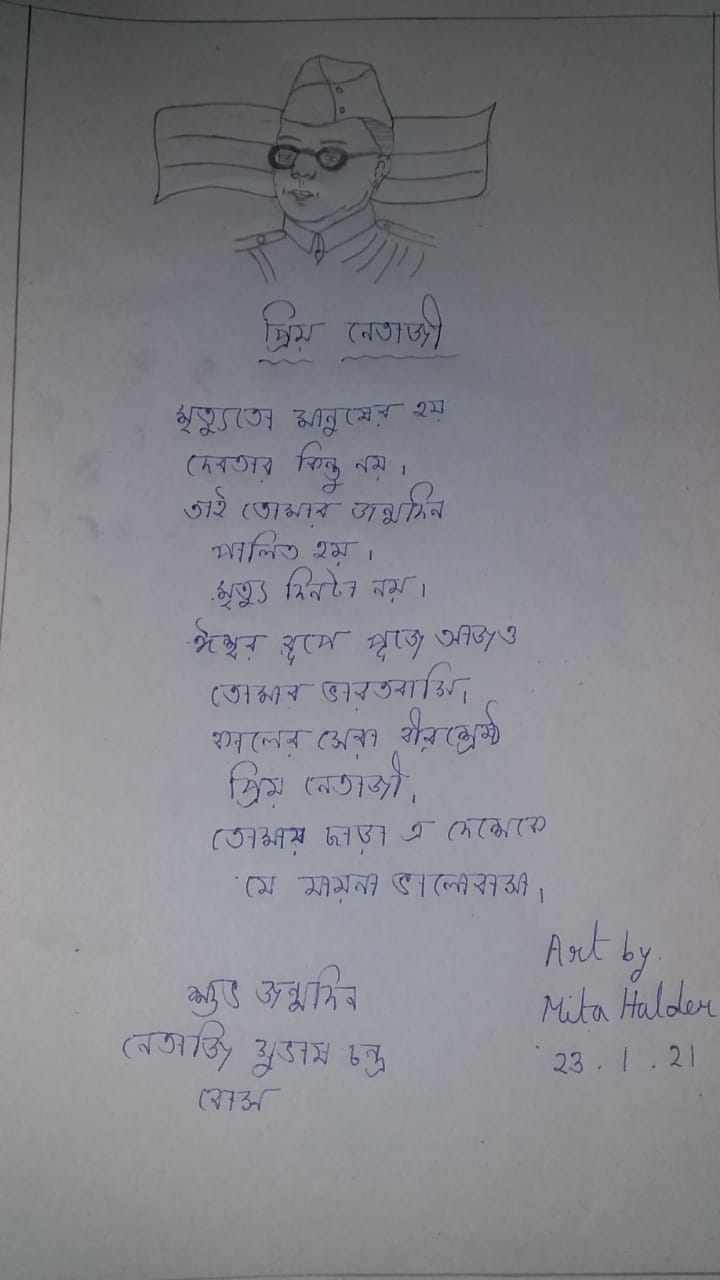 প্রিয় নেতাজী
মৃত্যুতো মানুষের হয়
দেবতার কিন্তু নয়।
তাই তোমার জন্মদিন
পালিত হয়।
মৃত্যু দিনটা নয়।
ঈশ্বর রূপে পূজে আজও
তোমার ভারতবাসি,
কালের সেরা বীরশ্রেষ্ঠ
প্রিয় নেতাজী,
তোমায় ছাড়া এ দেশকে
যে যায়না ভালোবাসা,
শুভ জন্মদিন
নেতাজি সুভাষ চন্দ্র
বোস
Art by.
Mita Halder
23.1.21